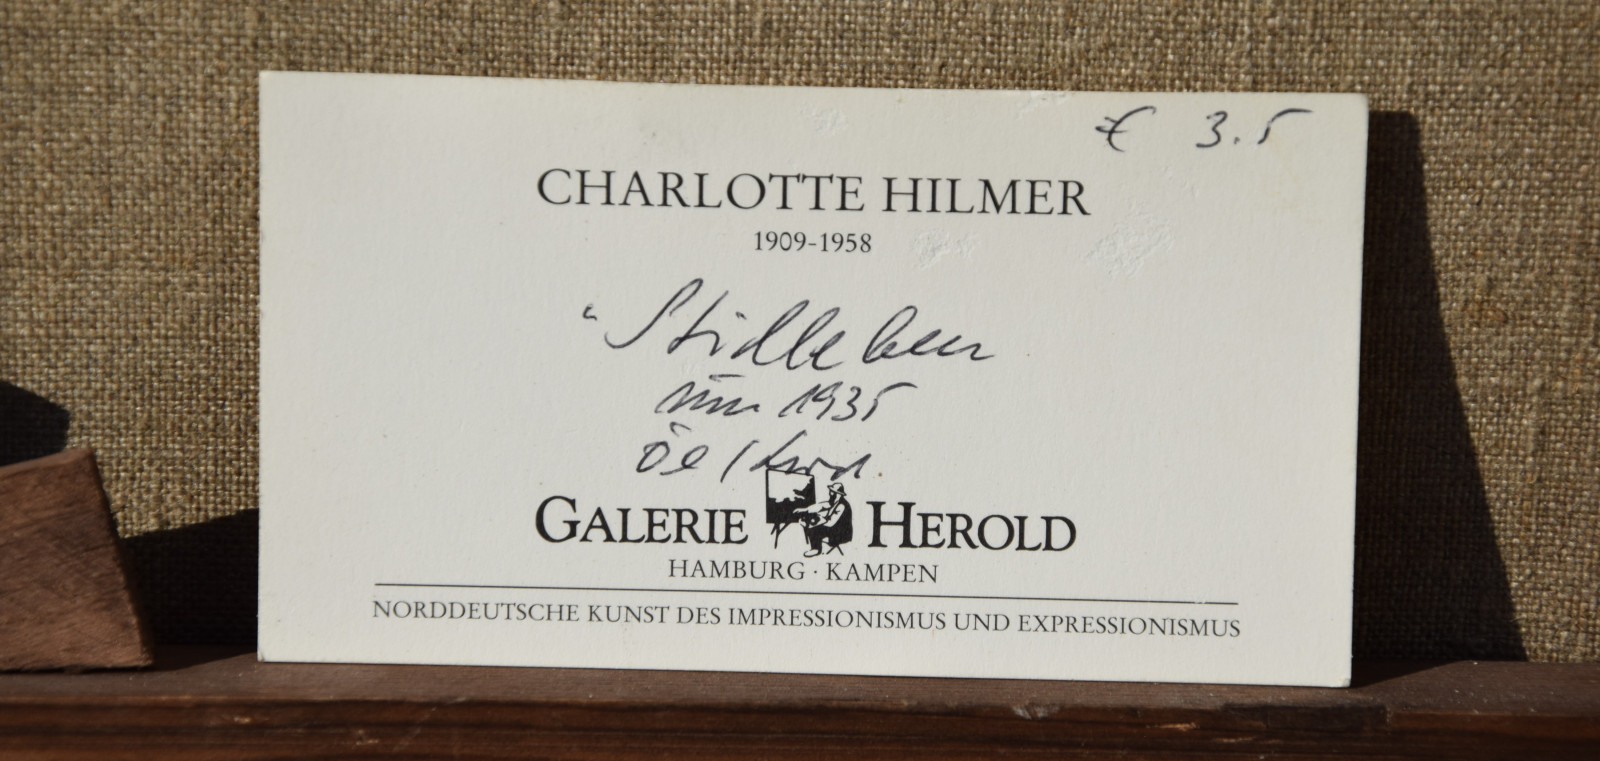 € 3.5
CHARLOTTE HILMER
1909-1958
"Stilleben
um 1935
Öl /
GALERIE HEROLD
HAMBURG · KAMPEN
NORDDEUTSCHE KUNST DES IMPRESSIONISMUS UND EXPRESSIONISMUS